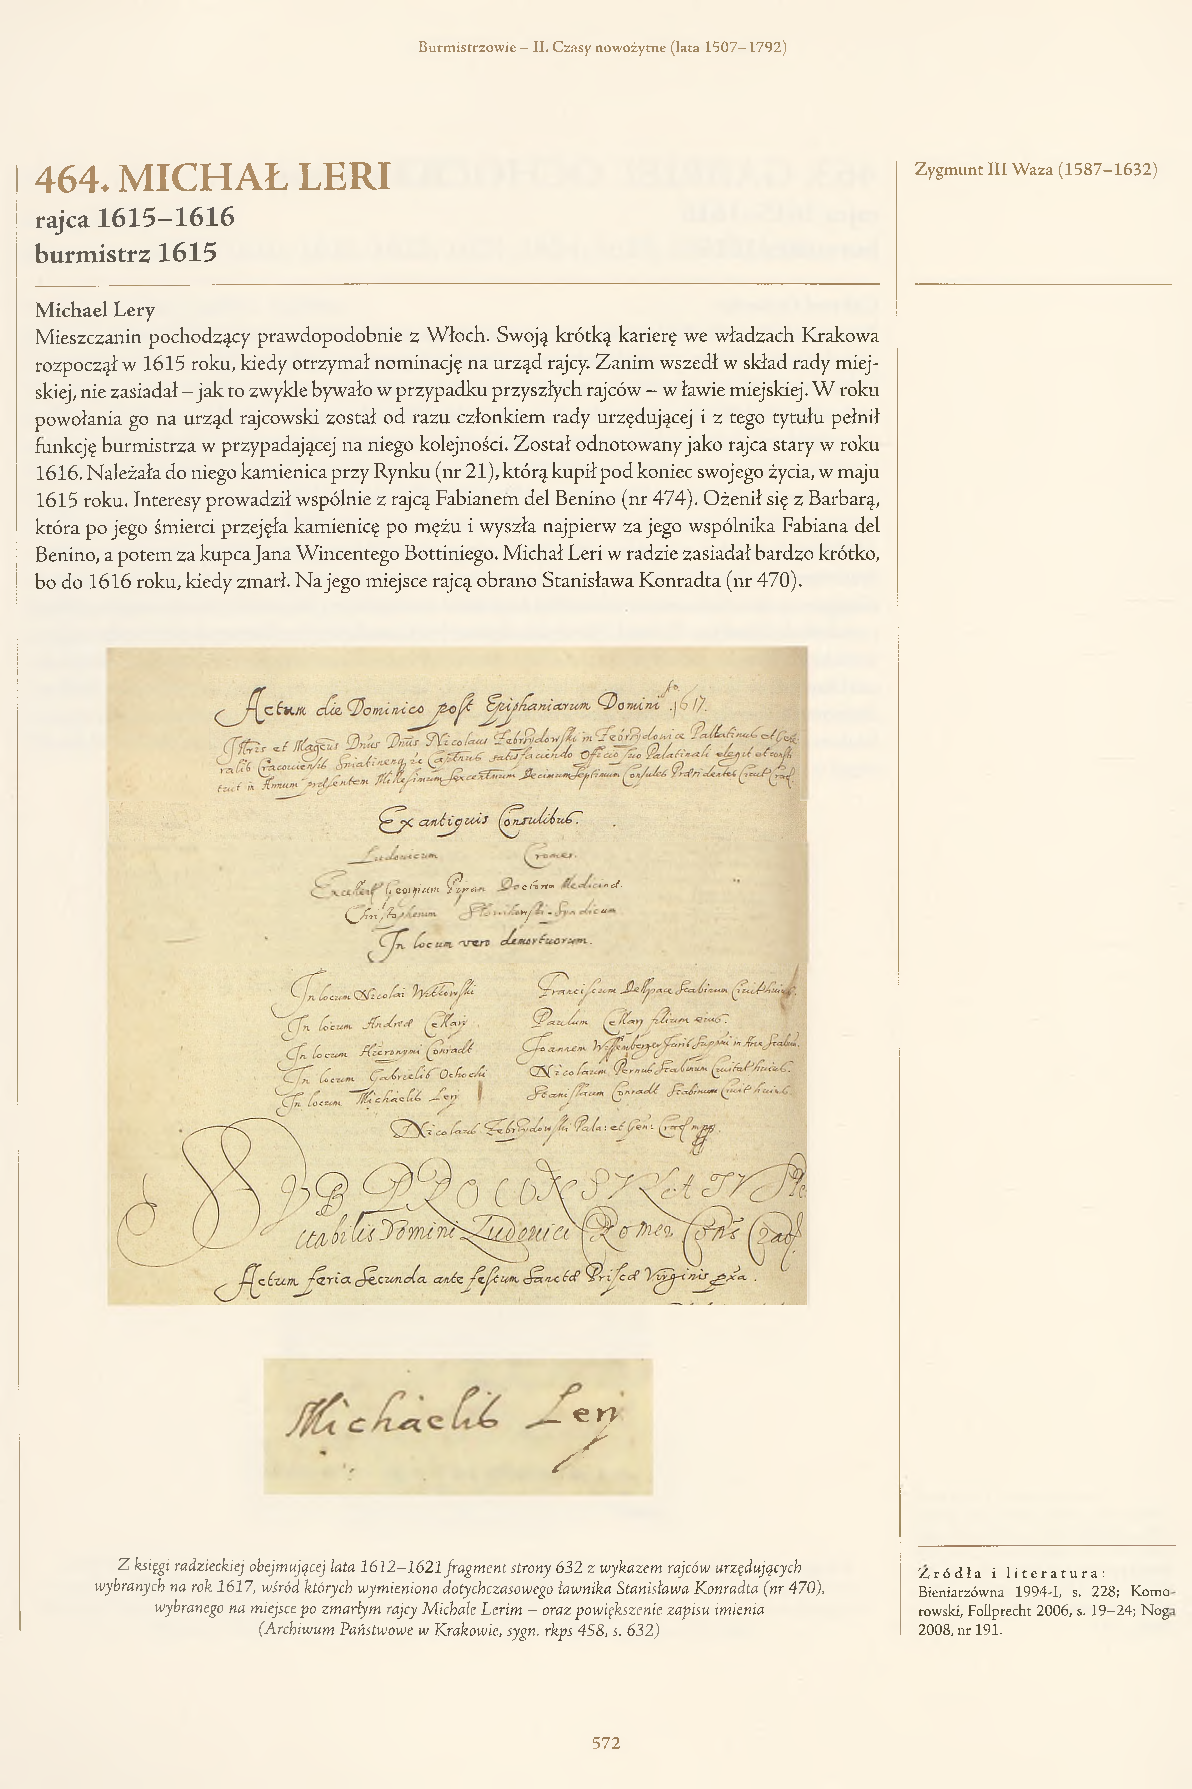 Burmistrzowie – II. Czasy nowożytne (lata 1507–1792)
464. MICHAŁ LERI
rajca 1615–1616
burmistrz 1615
Zygmunt III Waza (1587–1632)
Michael Lery
Mieszczanin pochodzący prawdopodobnie z Włoch. Swoją krótką karierę we władzach Krakowa
rozpoczął w 1615 roku, kiedy otrzymał nominację na urząd rajcy. Zanim wszedł w skład rady miej-
skiej, nie zasiadał – jak to zwykle bywało w przypadku przyszłych rajców – w ławie miejskiej. W roku
powołania go na urząd rajcowski został od razu członkiem rady urzędującej i z tego tytułu pełnił
funkcję burmistrza w przypadającej na niego kolejności. Został odnotowany jako rajca stary w roku
1616. Należała do niego kamienica przy Rynku (nr 21), którą kupił pod koniec swojego życia, w maju
1615 roku. Interesy prowadził wspólnie z rajcą Fabianem del Benino (nr 474). Ożenił się z Barbarą,
która po jego śmierci przejęła kamienicę po mężu i wyszła najpierw za jego wspólnika Fabiana del
Benino, a potem za kupca Jana Wincentego Bottiniego. Michał Leri w radzie zasiadał bardzo krótko,
bo do 1616 roku, kiedy zmarł. Na jego miejsce rajcą obrano Stanisława Konradta (nr 470).
Actum die Dominico post Epiphaniarum Domini 1617.
Nicolaus in Pallatinus et
satisfaciendo Officio suo Palatinali elegit et
in Annum præsentem Millesimum Sexcentesimum Decimum Septimum Consules Præsidentes
Ex antiquis Consulibus.
Ludovicum Cromer.
Georgium Pipan Doctorem Medicinæ.
Christophorum Syndicum
In locum vero demortuorum.
In locum Nicolai Witkowski Franciscum Delpace Scabinum
In locum Andreæ Cellary Paulum Cellary filium eius.
In locum Hieronymi Conradt Joannem
In locum Gabrielis Ochocki Nicolaum Pernus Scabinum
In locum Michaelis Lery Stanislaum Conradt Scabinum
Nicolaus Zebrzydowski Pala: et Gen:
SVB PROCONSVLATV Spe
ctabilis Domini Ludovici Cromer Cons Crac.
Actum feria Secunda ante festum Sanctæ Priscæ Virginis pxa.
Michaelis Lery
Z księgi radzieckiej obejmującej lata 1612–1621 fragment strony 632 z wykazem rajców urzędujących
wybranych na rok 1617, wśród których wymieniono dotychczasowego ławnika Stanisława Konradta (nr 470),
wybranego na miejsce po zmarłym rajcy Michale Lerim – oraz powiększenie zapisu imienia
(Archiwum Państwowe w Krakowie, sygn. rkps 458, s. 632)
Źródła i literatura:
Bieniarzówna 1994-I, s. 228; Komo-
rowski, Follprecht 2006, s. 19–24; Noga
2008, nr 191.
572